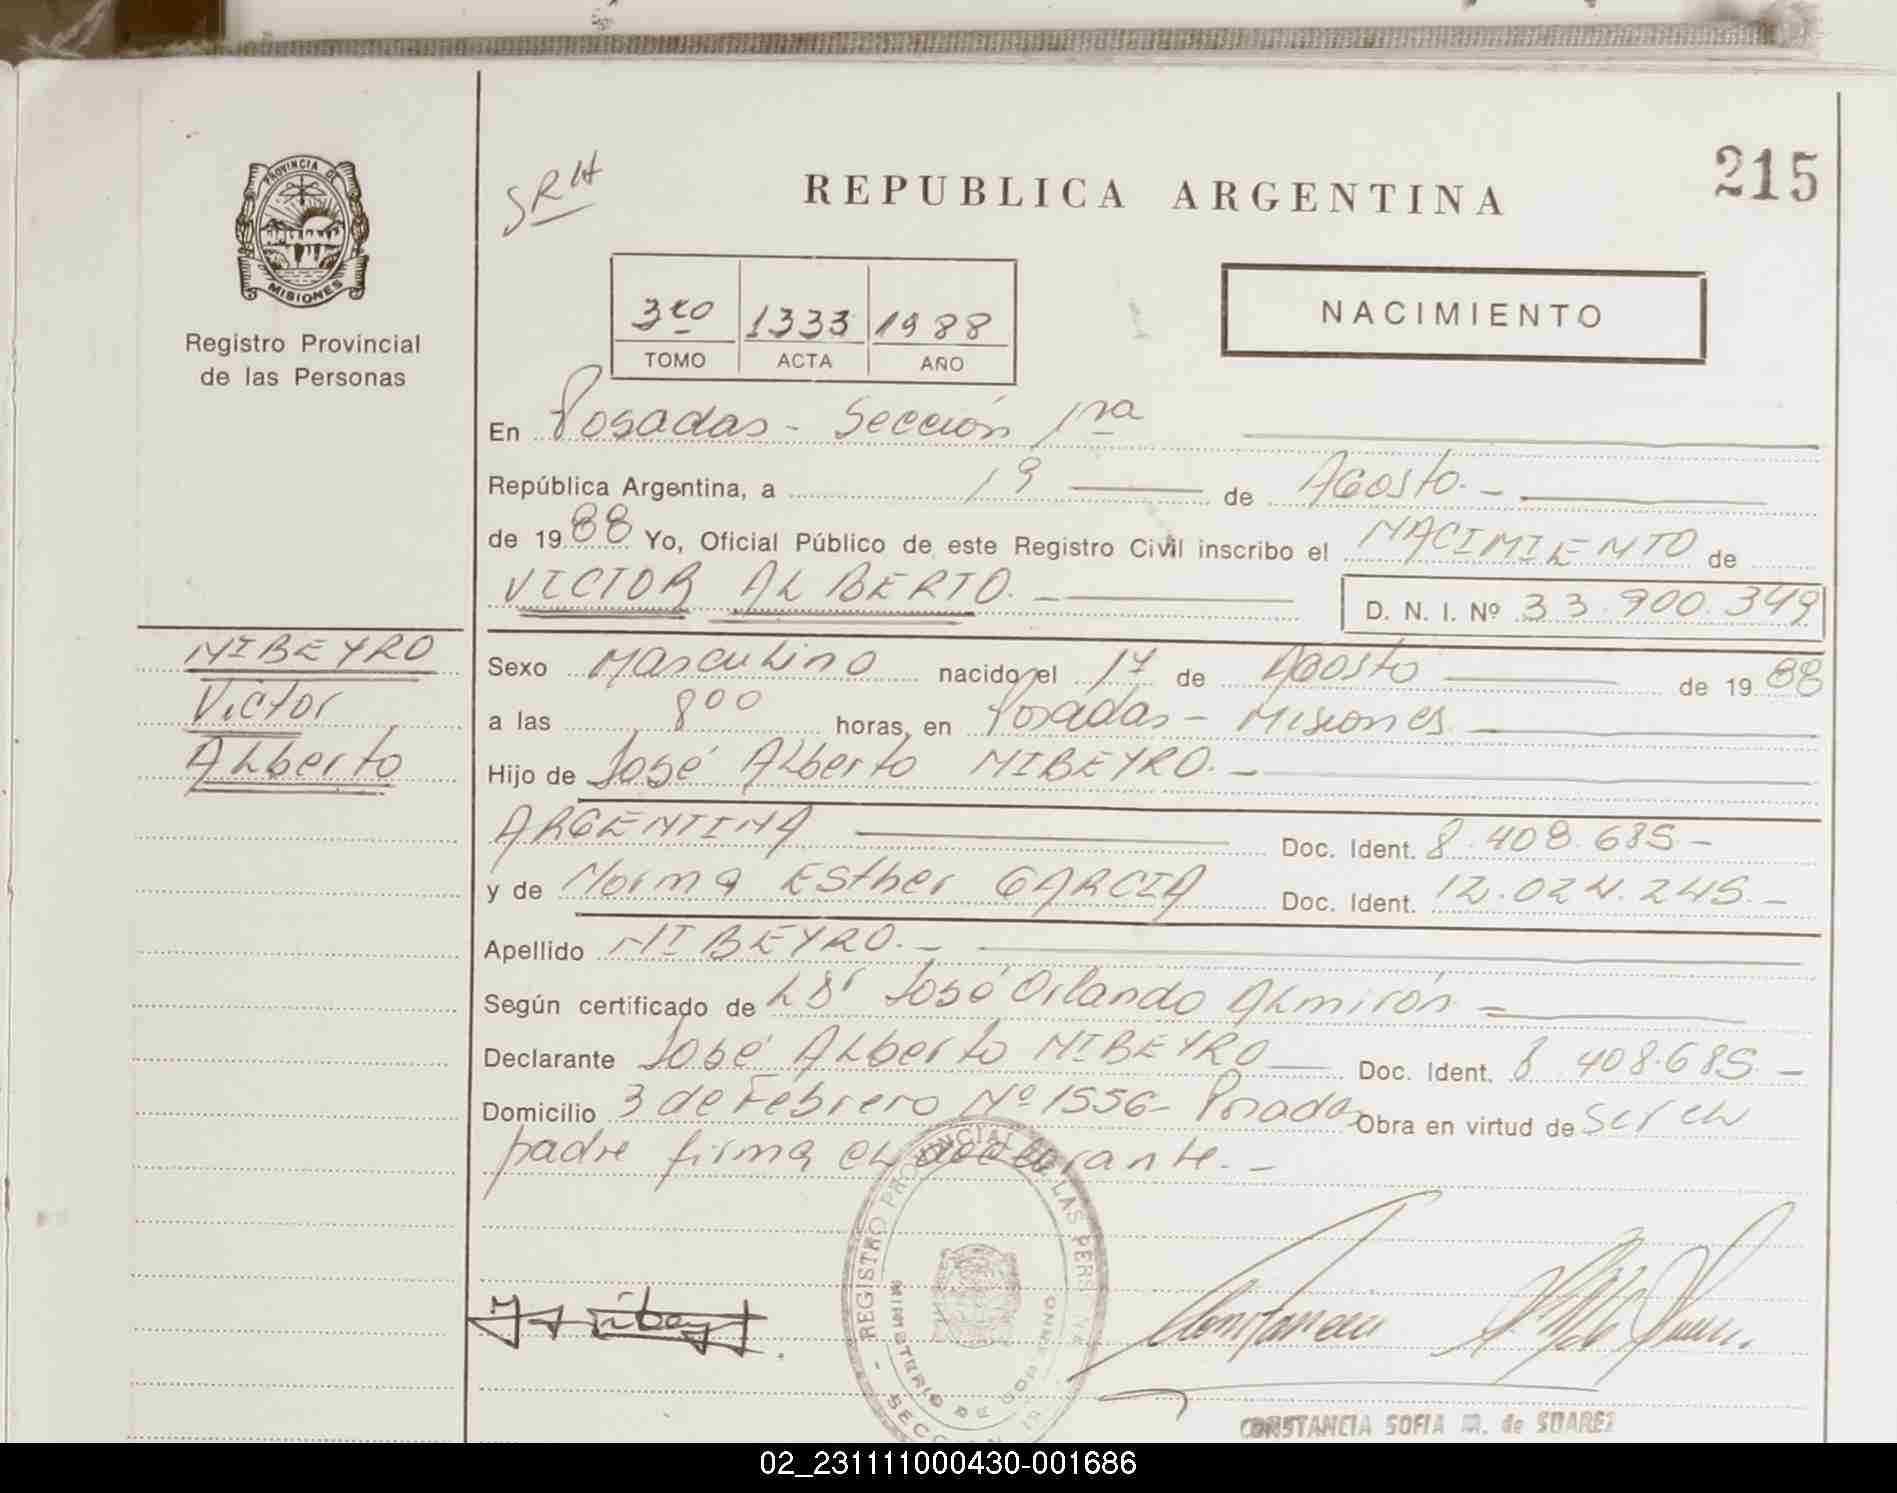 PROVINCIA DE
MISIONES
Registro Provincial
de las Personas
SRH
REPUBLICA ARGENTINA
215
3ro 1333 1988
TOMO ACTA AÑO
NACIMIENTO
En Posadas - Sección 1ra
República Argentina, a 19 de Agosto. -
de 1988 Yo, Oficial Público de este Registro Civil inscribo el NACIMIENTO de
VICTOR ALBERTO. -
D. N. I. Nº 33.900.349
NIBEYRO
Victor
Alberto
Sexo Masculino nacido el 17 de Agosto de 1988
a las 800 horas, en Posadas - Misiones
Hijo de José Alberto NIBEYRO. -
ARGENTINA Doc. Ident. 8.408.685 -
y de Norma Esther GARCIA Doc. Ident. 12.024.245. -
Apellido NIBEYRO. -
Según certificado de José Orlando Almirón -
Declarante José Alberto NIBEYRO Doc. Ident. 8.408.685 -
Domicilio 3 de Febrero Nº 1556 - Posadas Obra en virtud de ser el
padre firma el declarante. -
- REGISTRO PROVINCIAL DE LAS PERS
MINISTERIO DE GOBIERNO
SECCION
CONSTANCIA SOFIA M. de SUAREZ
02_231111000430-001686